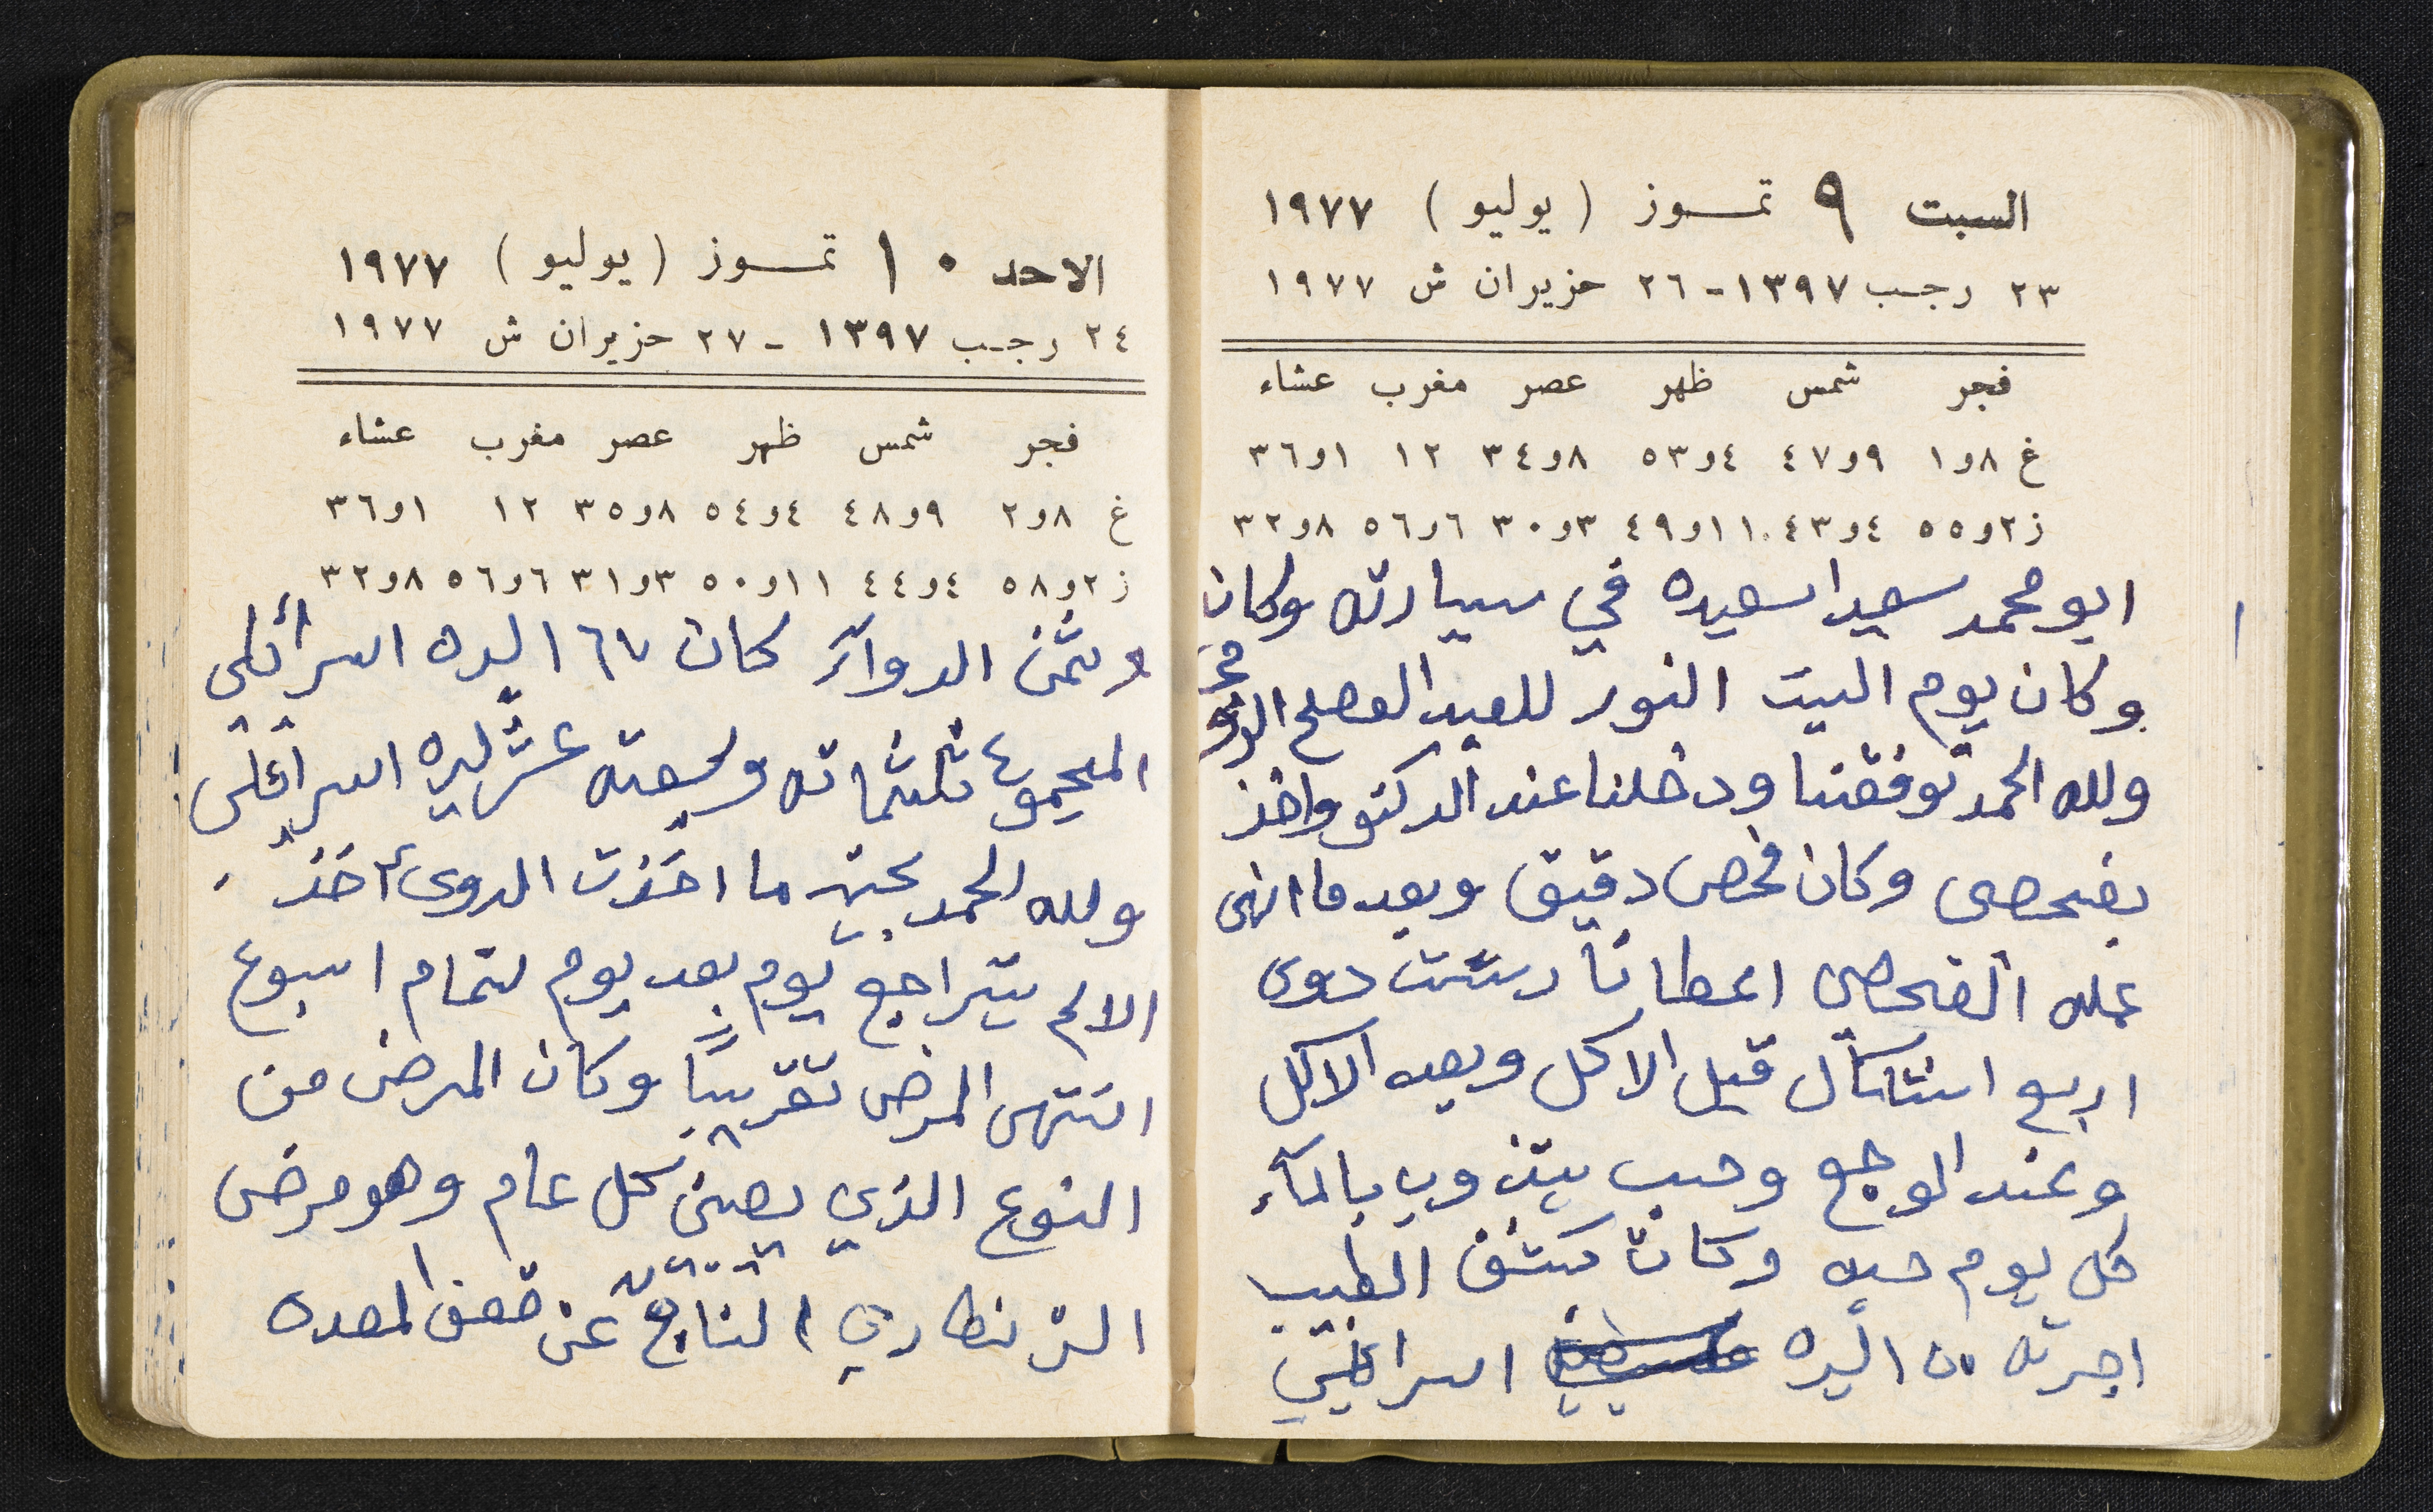 السبت ٩ تمــوز (يوليو) ١٩٧٧
٢٣ رجب ١٣٩٧ - ٢٦ حزيران ش ١٩٧٧
فجر شمس ظهر عصر مغرب عشاء
غ ٨و١ ٩و٤٧ ٤و٥٣ ٨و٣٤ ١٢ ١و٣٦
ز ٢و٥٥ ٤و٤٣ ١١و٤٩ ٣و٣٠ ٦و٥٦ ٨و٣٢
ابو محمد سعيد اسعيده في سيارته وكان
وكان يوم البيت النور للعيد
ولله الحمد توفقنا ودخلنا عند الدكتور واخذ
بفحصي وكان فحص دقيق وبعد ما انهى
عمله الفحص اعطانا رستت دوى
اربع اشكال قبل الاكل وبعد الاكل
وعند الوجع وحب يتذوب بالمآء
كل يوم حبه وكانة كشف الطبيب
اجرته ١٥٠ ليره اسرائلي
الاحد ١٠ تمــوز (يوليو) ١٩٧٧
٢٤ رجب ١٣٩٧ - ٢٧ حزيران ش ١٩٧٧
فجر شمس ظهر عصر مغرب عشاء
غ ٨و٢ ٩و٤٨ ٤و٥٤ ٨و٣٥ ١٢ ١و٣٦
ز ٢و٥٨ ٤و٤٤ ١١و٥٠ ٣و٣١ ٦و٥٦ ٨و٣٢
وثمن الدوآء كان ١٦٧ ليره اسرائلي
المجموع ثلثمائه وسبعته عشر ليره اسرائلي
ولله الحمد ما اخذت الدوىء اخذ
الالم يتراجع يوم بعد يوم لتمام اسبوع
انتهى المرض تقريباً وكان المرض من
النوع الذي يصبني كل عام وهو مرض
الزنطاري الناتج عن المعده